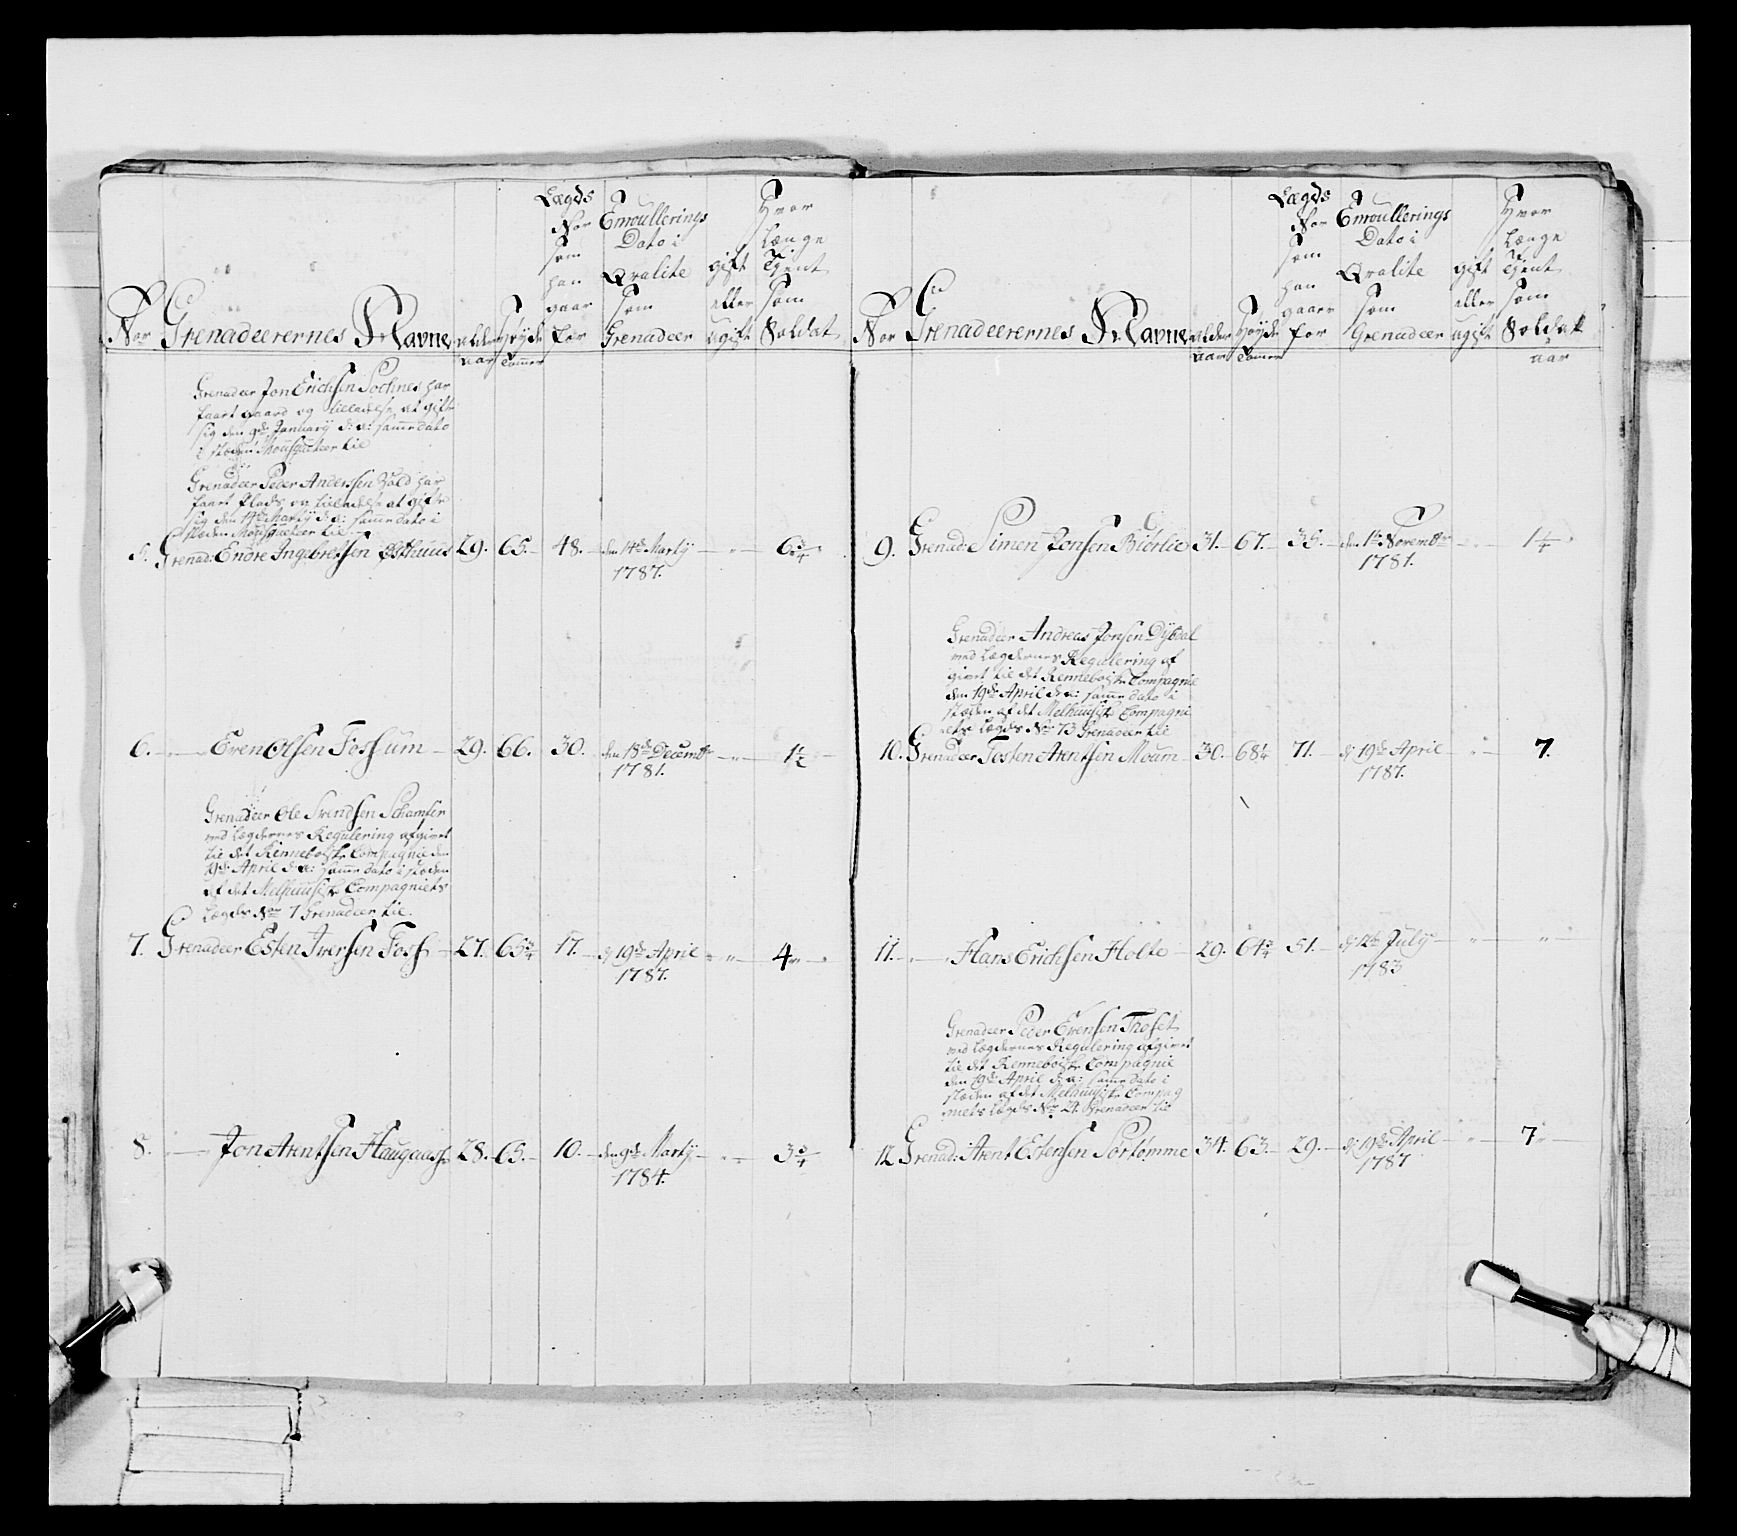 Nor
Grenadeerernes Navne
alder
Aar
Høyde
Tommer
Lægds
Nor
som
han
gaar
for
Enroullerings
Dato i
Qvalite
som
Grenadeer
gift
eller
ugift
Hvor
længe
Tient
som
Soldat
Grenadeer Jon Erichsen Sochnes har
faaet gaard og tilladelse at gifte
sig den 9de January d: a: samme dato
i stæden Mousqueteer til
Grenadeer Peder Andersen Vold har
faaet Plads og tilladelse at gifte
sig den 14de Marty d: a: samme dato i
stæden Mousqueteer til
5. Grenad: Endre Ingebretsen Østhuus 29. 65. 48. den 14de Marty 6 3/4
1787.
6. Even Olsen Fossum 29. 66. 30. den 18de Decembr 1 1/2
1781.
Grenadeer Ole Svendsen Schamfer
ved Lægdernes Regulering afgivet
til det Renneboiske Compagnie den
19de April d: a: samme dato i stæden
af det Melhuusiske Compagniets
Lægds Nor 7 Grenadeer til.
7. Grenadeer Esten Iversen Foss 27. 65 3/4 17. d: 19de April 4
1787.
8. Jon Arentsen Haugaas 28. 65. 10. den 9de Marty 3 3/4
1784.
Nor
Grenadeerernes Navne
alder
Aar
Høyde
Tommer
Lægds
Nor
som
han
gaar
for
Enroullerings
Dato i
Qvalite
som
Grenadeer
gift
eller
ugift
Hvor
længe
Tient
som
Soldat
aar
9. Grenad: Simen Jonsen Biérlie 31. 67. 35. den 1te Novembr 1 1/4
1781.
Grenadeer Andreas Jonsen Dybdal
ved Lægdernes Regulering af
givet til det Renneboiske Compagnie
den 19de April d: a: samme dato i
stæden af det Melhuusiske Compagni
ets Lægds Nor 73 Grenadeer til
10. Grenadeer Tosten Arentsen Moum 30. 68 1/4 71. d: 19de April 7.
1787.
11. Hans Erichsen Holte 29. 64 3/4 51. d: 12te July
1783
Grenadeer Peder Evensen Troset
ved Lægdernes Regulering afgivet
til det Renneboiske Compagnie
den 19de April d: a: samme dato i
stæden af det Melhuusiske Compag
niets Lægds Nor 24. Grenadeer til
12. Grenad: Arent Estensen Sørtømme 34. 63. 29. d: 19de April 7
1787